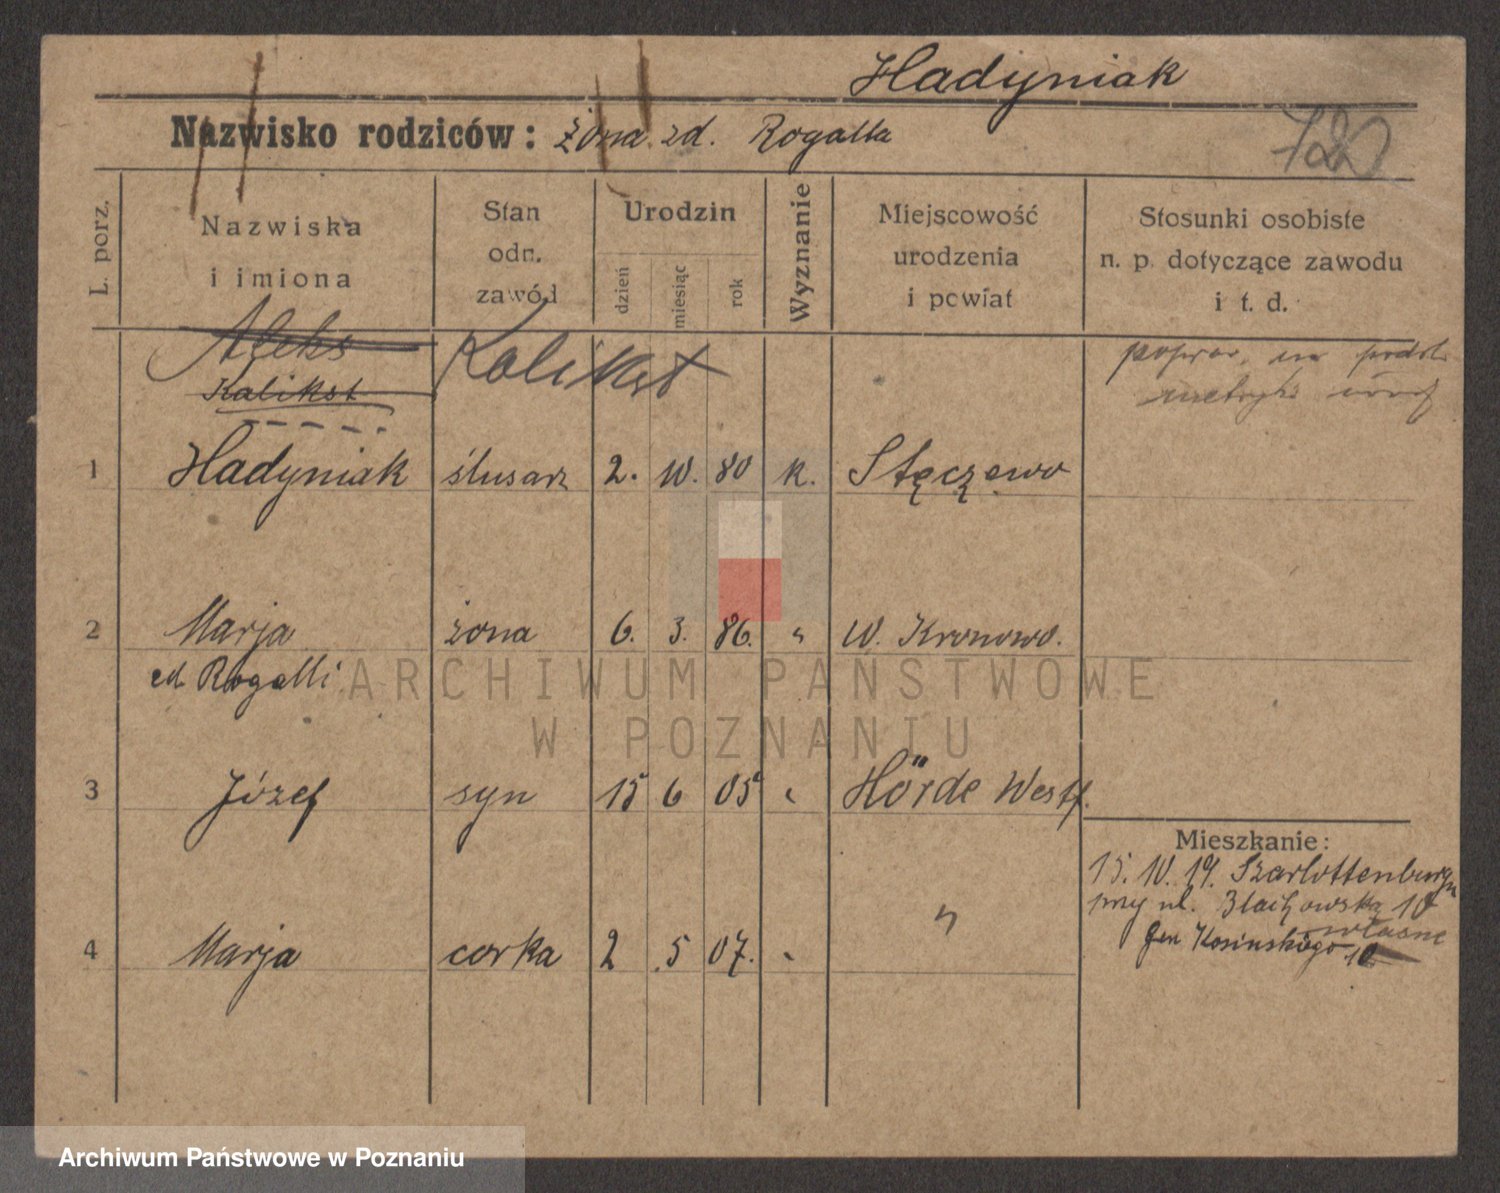 Hadyniak
Nazwisko rodziców: żona zd. Rogalla
120
L. porz.
Nazwiska
i imiona
Stan
odn.
zawód
Urodzin
dzień
miesiąc
rok
Wyznanie
Miejscowość
urodzenia
i powiat
Stosunki osobiste
n. p. dotyczące zawodu
i t. d.
Aleks Kalikst
Kalikst
popraw. na podst.
metryki urodz
1 Hadyniak ślusarz 2. 10. 80 k. Stęczewo
2 Marja żona 6. 3. 86. " W. Kronowo.
zd Rogalli
3 Józef syn 15 6 05 " Hörde Westf.
Mieszkanie:
15. 10. 19. Szarlottenburga
przy ul. 10
własne
Gen Kosińskiego 10
4 Marja corka 2 5 07. " "
ARCHIWUM PAŃSTWOWE
W POZNANIU
Archiwum Państwowe w Poznaniu